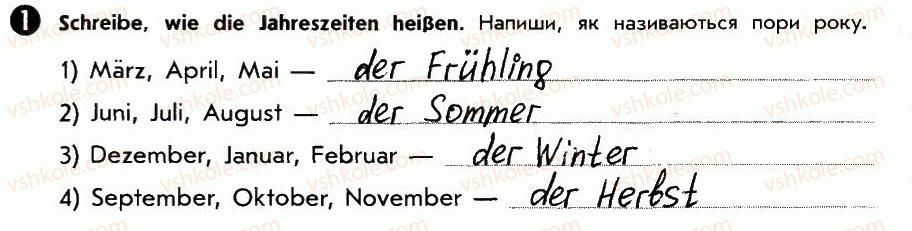 1 Schreibe, wie die Jahreszeiten heißen. Напиши, як називаються пори року.
1) März, April, Mai — der Frühling
2) Juni, Juli, August — der Sommer
3) Dezember, Januar, Februar — der Winter
4) September, Oktober, November — der Herbst